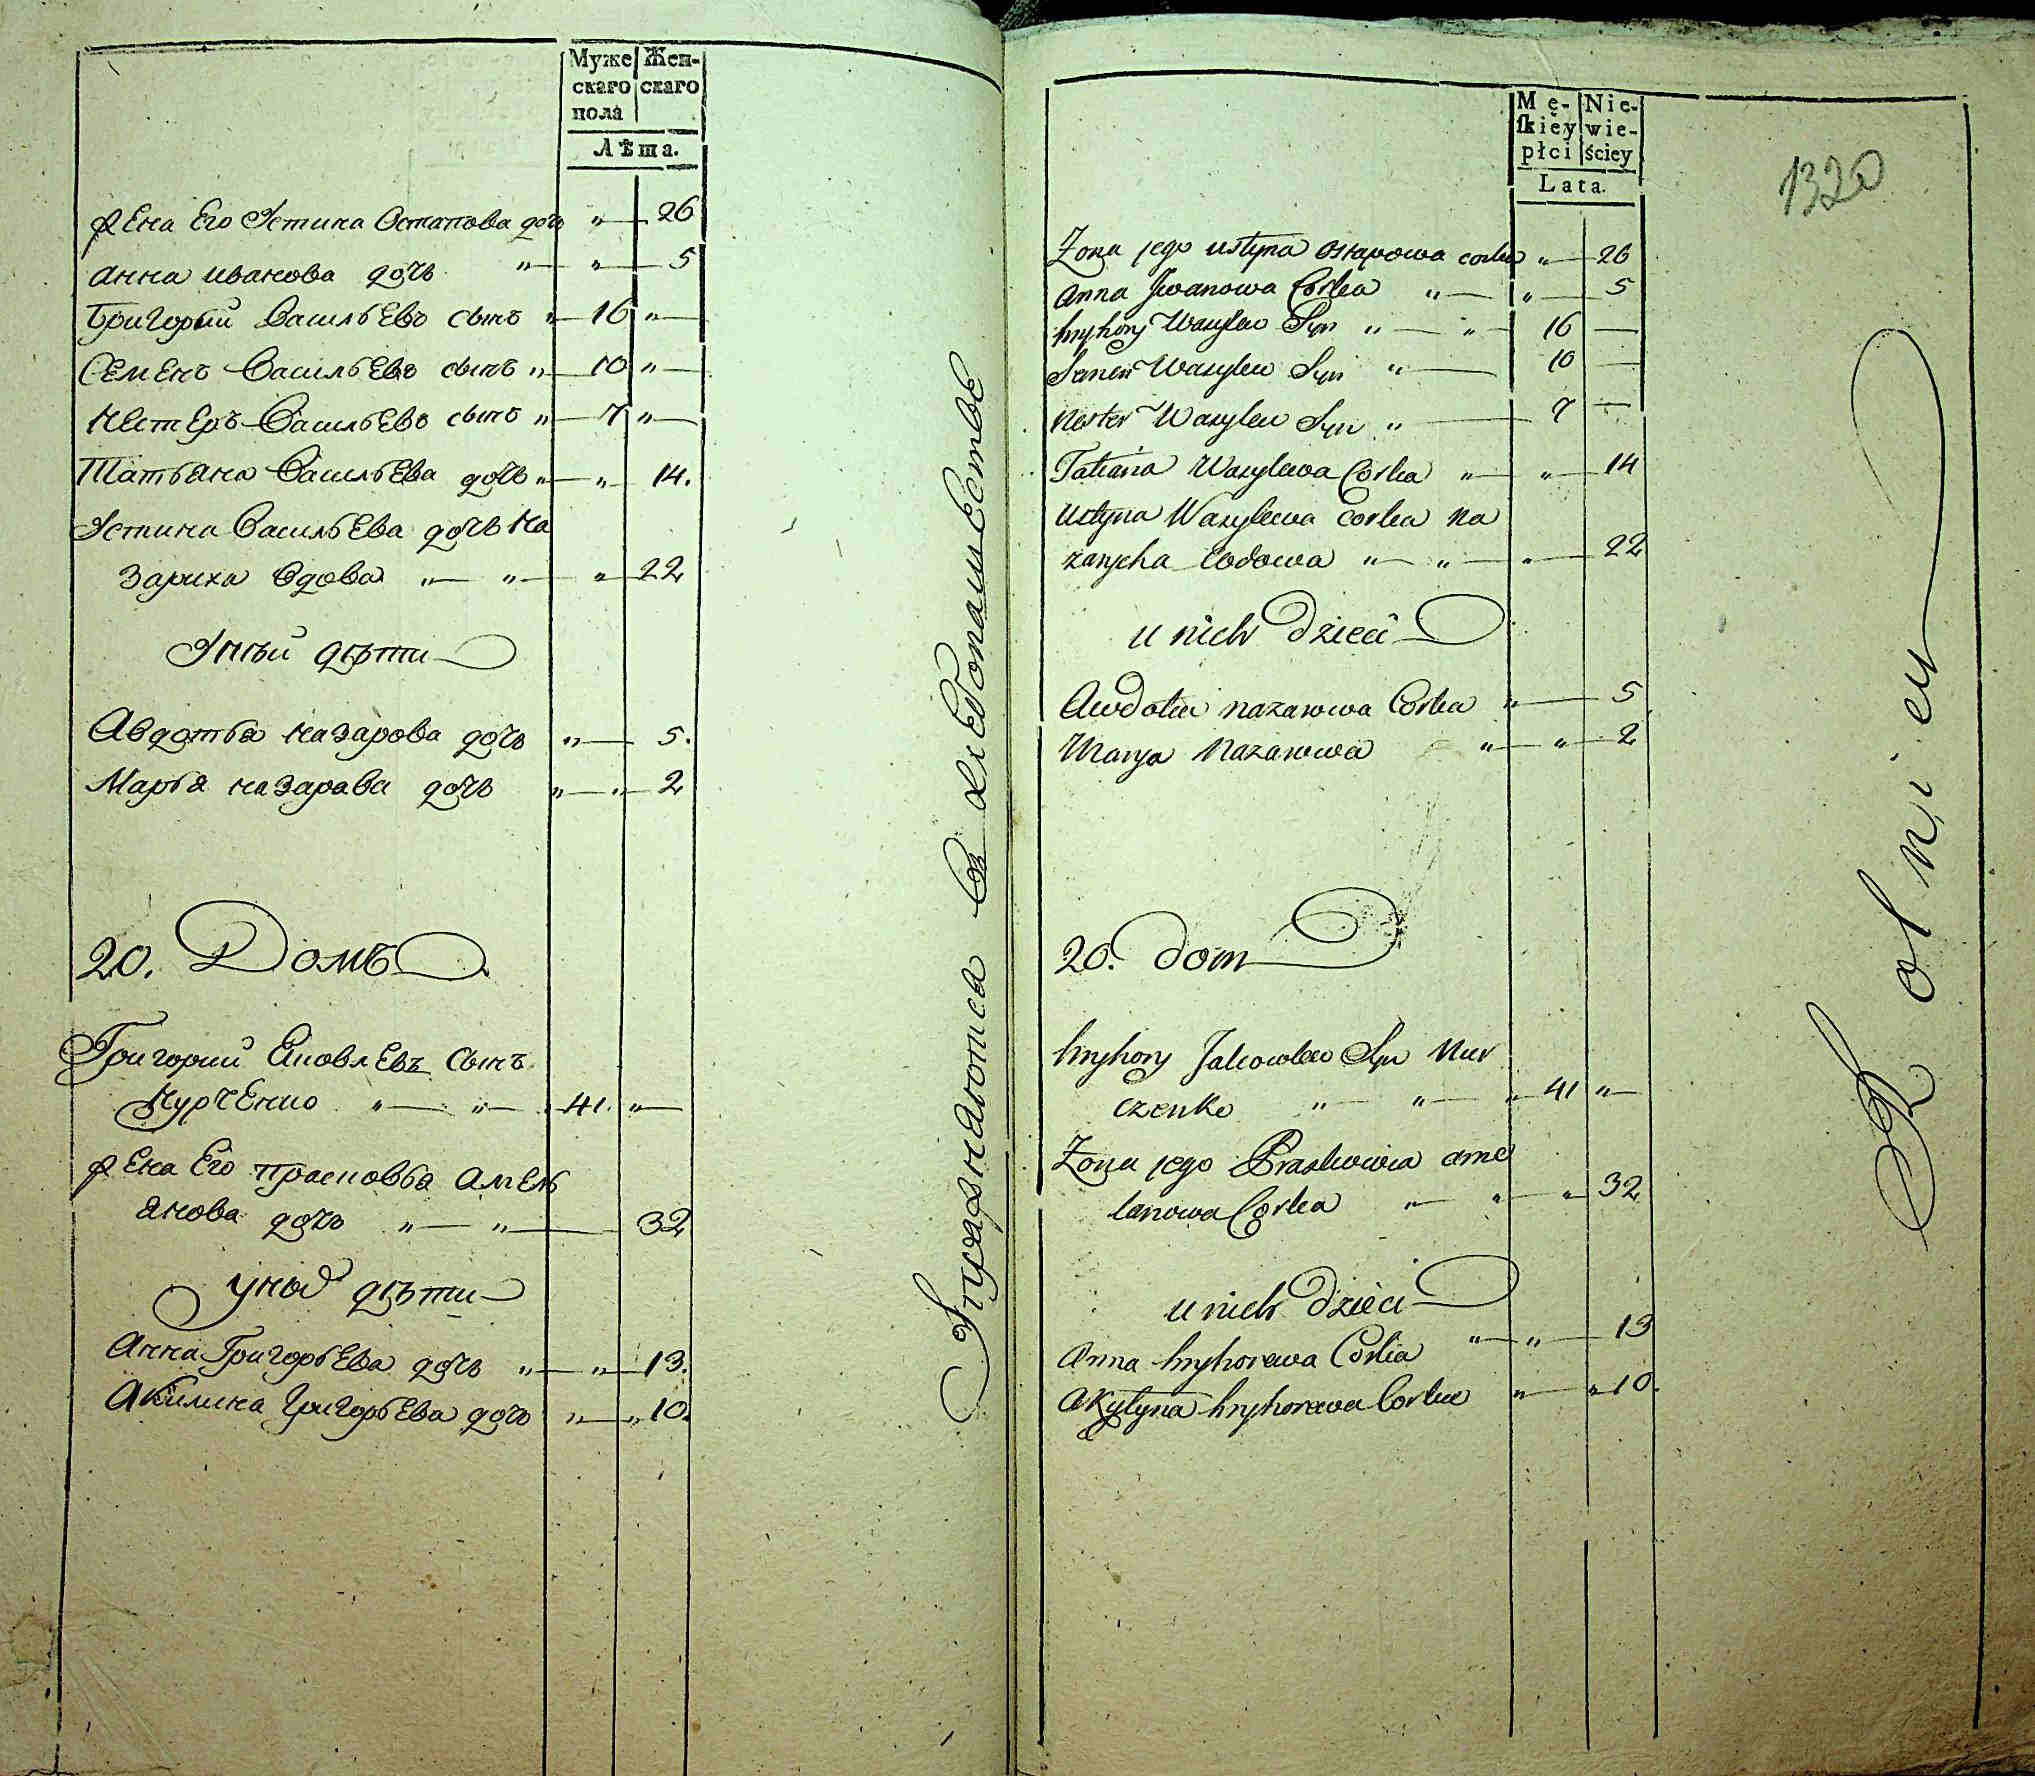 Муже Жен-
скаго скаго
пола
Лѣта.
жена Его Устина Остапова дочь " — 26
Анна иванова дочь " — " — 5
Григорий Васильевъ сынъ " — 16 " —
Семенъ Васильевъ сынъ " — 10 " —
Нестеръ Васильевъ сынъ " — 7 " —
Татьяна Васильева дочь " — " — 14.
Устина Васильева дочь На
зариха вдова " — " — " — 22
Унѣй дѣти
Авдотья назарова дочь " — 5.
Марья назарава дочь " — " — 2
20. Домъ
Григорий Яковлевъ сынъ
Курченко " — " — 41. " —
жена Его Прасковья Амель
янова дочь " — " — 32
уных дѣти
Анна Григорьева дочь " — " — 13.
Акилина Григорьева дочь " — " 10.
Упражняются въ хлебопашестве
Mę- Nie-
ſkiéy wie-
płci ściey
Lata.
1320
Zona jego ustyna ostapowa corka " — 26
Anna Jwanowa Corka " — " — 5
hryhory Wasylew Syn " — " — 16 —
Semen Wasylew Syn " — 10 —
Nester Wasylew Syn " — 7 —
Tatiana Wasylewa Corka " — " — 14
Ustyna Wasylewa Corka Na
zarycha wdowa " — " — " — 22
u nich dzieci
Awdotia nazarowa Corka " — 5
Marya Nazarowa " — " — 2
20. dom
hryhory Jakowlew Syn Kur
czenko " — " — " — 41 " —
Zona jego Praskowia ame
lanowa Corka " — " — " — 32
u nich dzieci
Anna hryhorewa Corka " — " — 13
Akylyna hryhorewa Corka " — " 10.
Rolniey